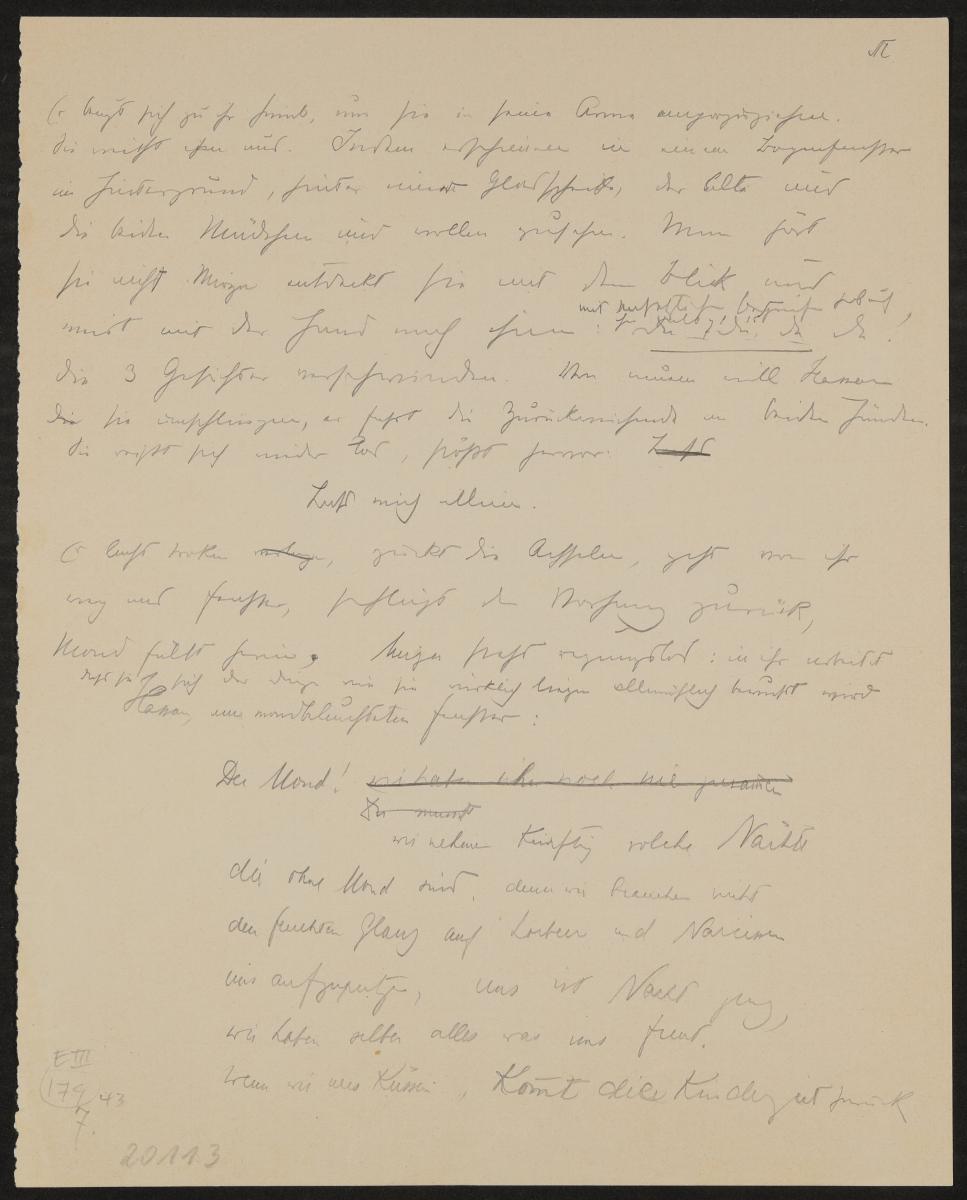 VI
Er beugt sich zu ihr hinab, um sie in seine Arme emporzuziehen.
Sie weicht ihm aus. Indem erscheinen in einem Bogenfenster
im Hintergrund, hinter einer Glasscheibe, der Alte und
die beiden Mädchen und wollen zusehen. Man hört
sie nicht. entdeckt sie mit dem Blick und
mit
weist mit der Hand nach ihnen: da! da! da da!
die 3 Gesichter verschwinden. Von neuem will Hassan
die sie umschlingen, er fasst die Zurückweichende an beiden Händen.
Sie reißt sich wieder los, stößt hervor: Lass
Lass mich allein.
Er lacht trocken, zuckt die Achseln, geht von ihr
weg ans Fenster, schlägt den Vorhang zurück,
Mond fällt herein. steht regungslos: in ihr arbeitet
dass sie sich der Dinge wie sie wirklich liegen allmählich bewusst wird
Hassan, am mondbeleuchteten Fenster:
Der Mond! wir haben ihn noch nie gesehen
Du musst
wir nehmen künftig solche Nächte
die ohne Mond sind, denn wir brauchen nicht
den feuchten Glanz auf Lorbeer und Narcissen
uns aufzuputzen, uns ist Nacht genug,
wir haben selber alles was uns freut.
Wenn wir uns küssen, kommt die Kinderzeit zurück
E III
179 43
7.
20113